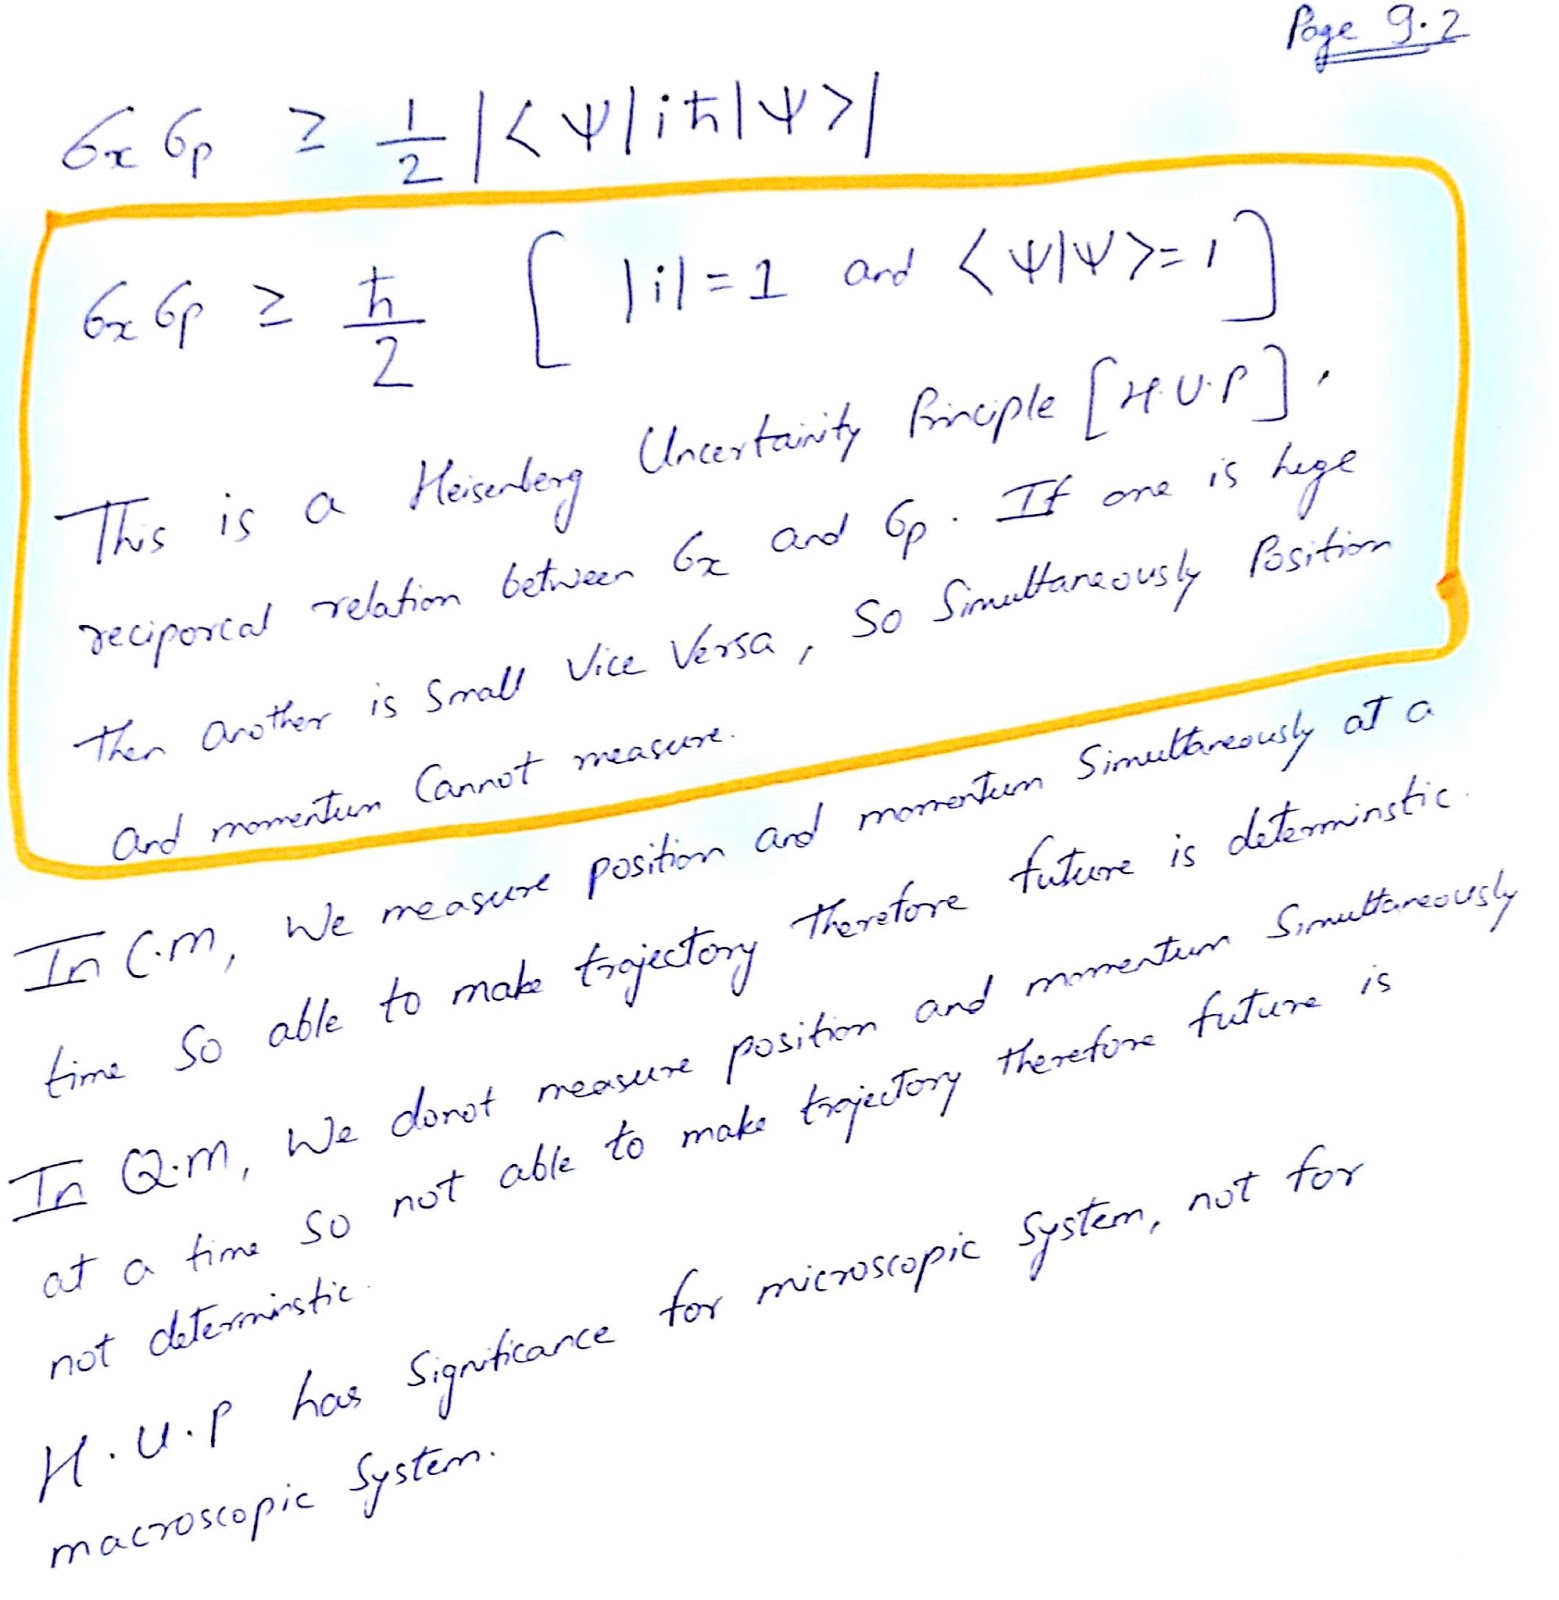 Page 9.2
σx σp ≥ 1/2 |<ψ|iħ|ψ>|
σx σp ≥ ħ/2 [ |i| = 1 and <ψ|ψ> = 1 ]
This is a Heisenberg Uncertainity Principle [H.U.P],
reciporcal relation between σx and σp. If one is huge
then another is small Vice Versa, So Simultaneously Position
and momentum Cannot measure.
In C.M, We measure position and momentum Simultaneously at a
time So able to make trajectory therefore future is determinstic.
In Q.M, We donot measure position and momentum Simultaneously
at a time So not able to make trajectory therefore future is
not determinstic.
H.U.P has Significance for microscopic System, not for
macroscopic System.